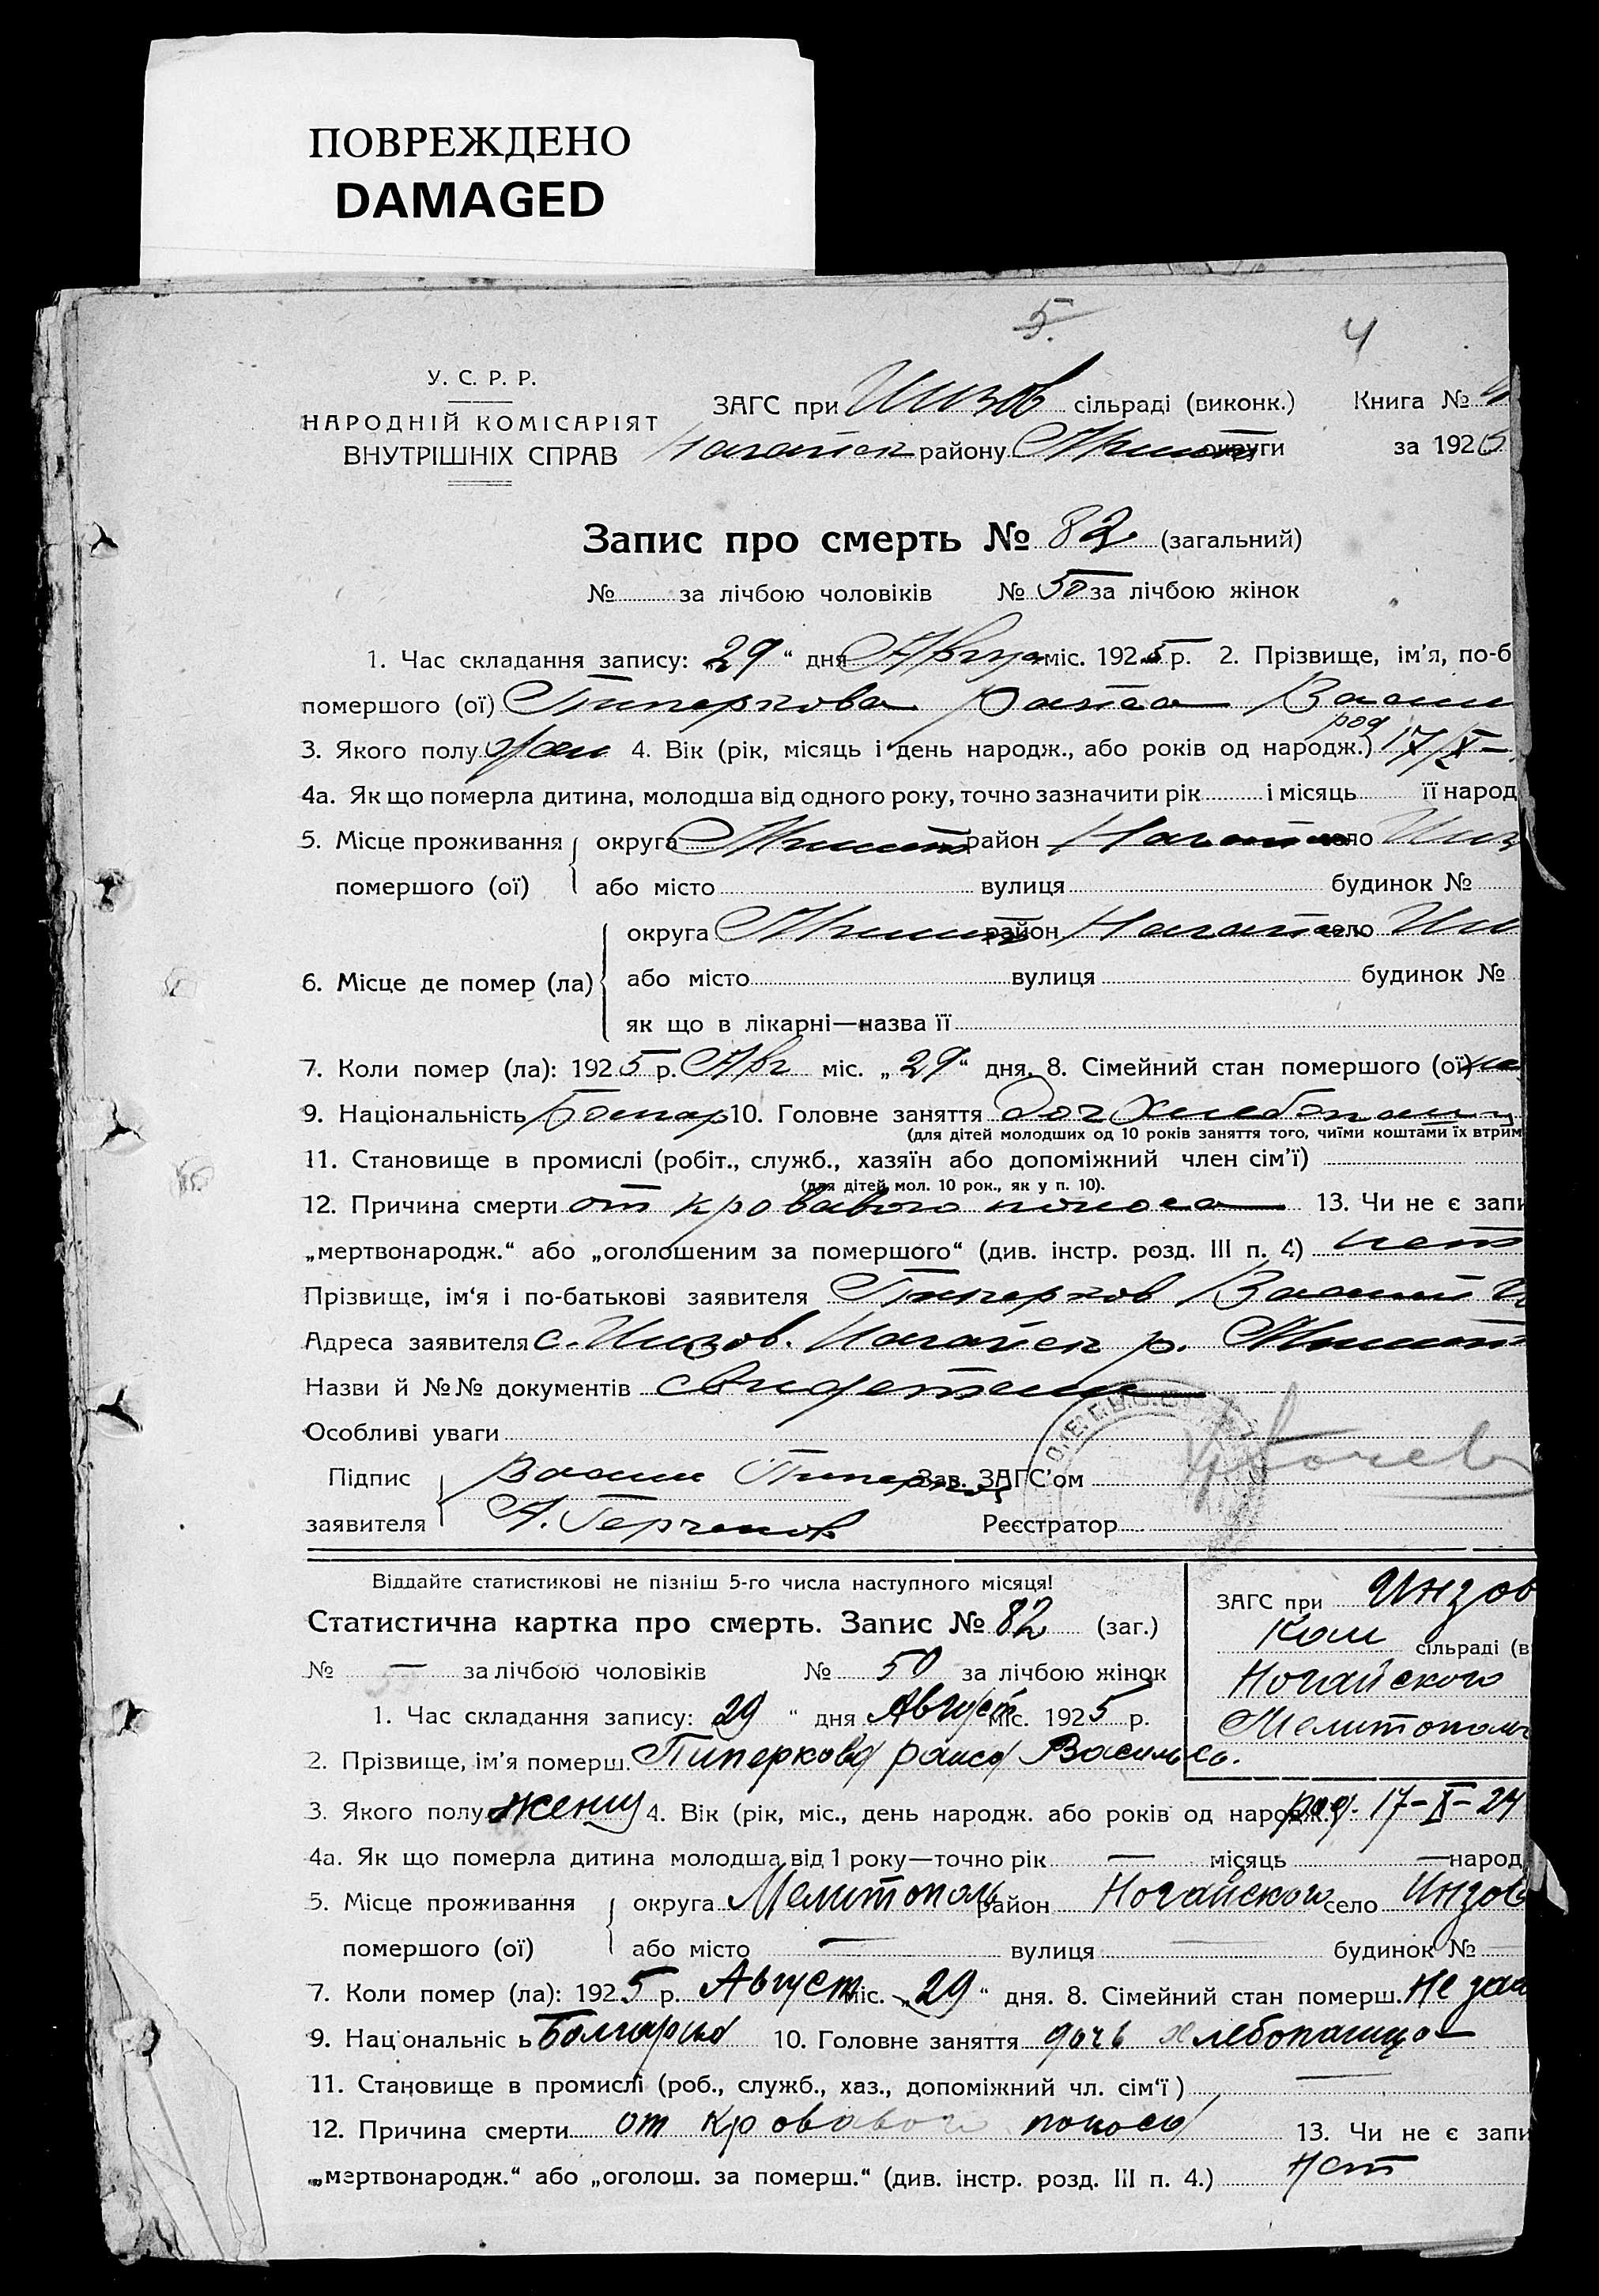 ПОВРЕЖДЕНО
DAMAGED
5.
4
У. С. Р. Р.
НАРОДНІЙ КОМІСАРІЯТ
ВНУТРІШНІХ СПРАВ
ЗАГС при Инзов сільраді (виконк.) Книга № 4
Нагайск району Мелит округи за 1925
Запис про смерть № 82 (загальний)
№ за лічбою чоловіків № 50 за лічбою жінок
1. Час складання запису: „29“ дня Авгус міс. 1925 р. 2. Прізвище, ім’я, по-б
помершого (ої) Пиперкова Раиса Васил
3. Якого полу жен 4. Вік (рік, місяць і день народж., або років од народж.) род 17/X-
4а. Як що померла дитина, молодша від одного року, точно зазначити рік і місяць її народ
5. Місце проживання помершого (ої) округа Мелит район Нагайск село Инз
або місто вулиця будинок №
6. Місце де помер (ла) округа Мелит район Нагайск село Ин
або місто вулиця будинок №
як що в лікарні—назва її
7. Коли помер (ла): 1925 р. Авг міс. „29“ дня. 8. Сімейний стан помершого (ої) не
9. Національність Болгар 10. Головне заняття доч хлебопашц
(для дітей молодших од 10 років заняття того, чиїми коштами їх втрим
11. Становище в промислі (робіт., служб., хазяїн або допоміжний член сім’ї)
(для дітей мол. 10 рок., як у п. 10).
12. Причина смерти от кровавого поноса 13. Чи не є запи
„мертвонародж.“ або „оголошеним за помершого“ (див. інстр. розд. III п. 4) нет
Прізвище, ім‘я і по-батькові заявителя Пиперков Василий И
Адреса заявителя с. Инзов. Нагайск р. Мелит
Назви й №№ документів свидетели
Особливі уваги
Підпис Васили Пиперков Зав. ЗАГС’ом
заявителя А. Герчеков Реєстратор
Віддайте статистикові не пізніш 5-го числа наступного місяця!
Статистична картка про смерть. Запис № 82 (заг.)
№ — за лічбою чоловіків № 50 за лічбою жінок
ЗАГС при Инзов
Ком сільраді (в
Ногайского
Мелитополь
1. Час складання запису: 29 “ дня Август міс. 1925 р.
2. Прізвище, ім’я померш. Пиперкова раиса Васильев.
3. Якого полу женщ 4. Вік (рік, міс., день народж. або років од народж.) род. 17-X-24
4а. Як що померла дитина молодша від 1 року—точно рік — місяць — народ
5. Місце проживання помершого (ої) округа Мелитополь район Ногайского село Инзов
або місто — вулиця — будинок № —
7. Коли помер (ла): 1925 р. Август міс. „29“ дня. 8. Сімейний стан померш. Не зам
9. Національніс ь Болгарка 10. Головне заняття дочь хлебопашца
11. Становище в промислі (роб., служб., хаз., допоміжний чл. сім‘ї) —
12. Причина смерти от кровавого поноса 13. Чи не є запи
„мертвонародж.“ або „оголош. за померш.“ (див. інстр. розд. III п. 4.) Нет